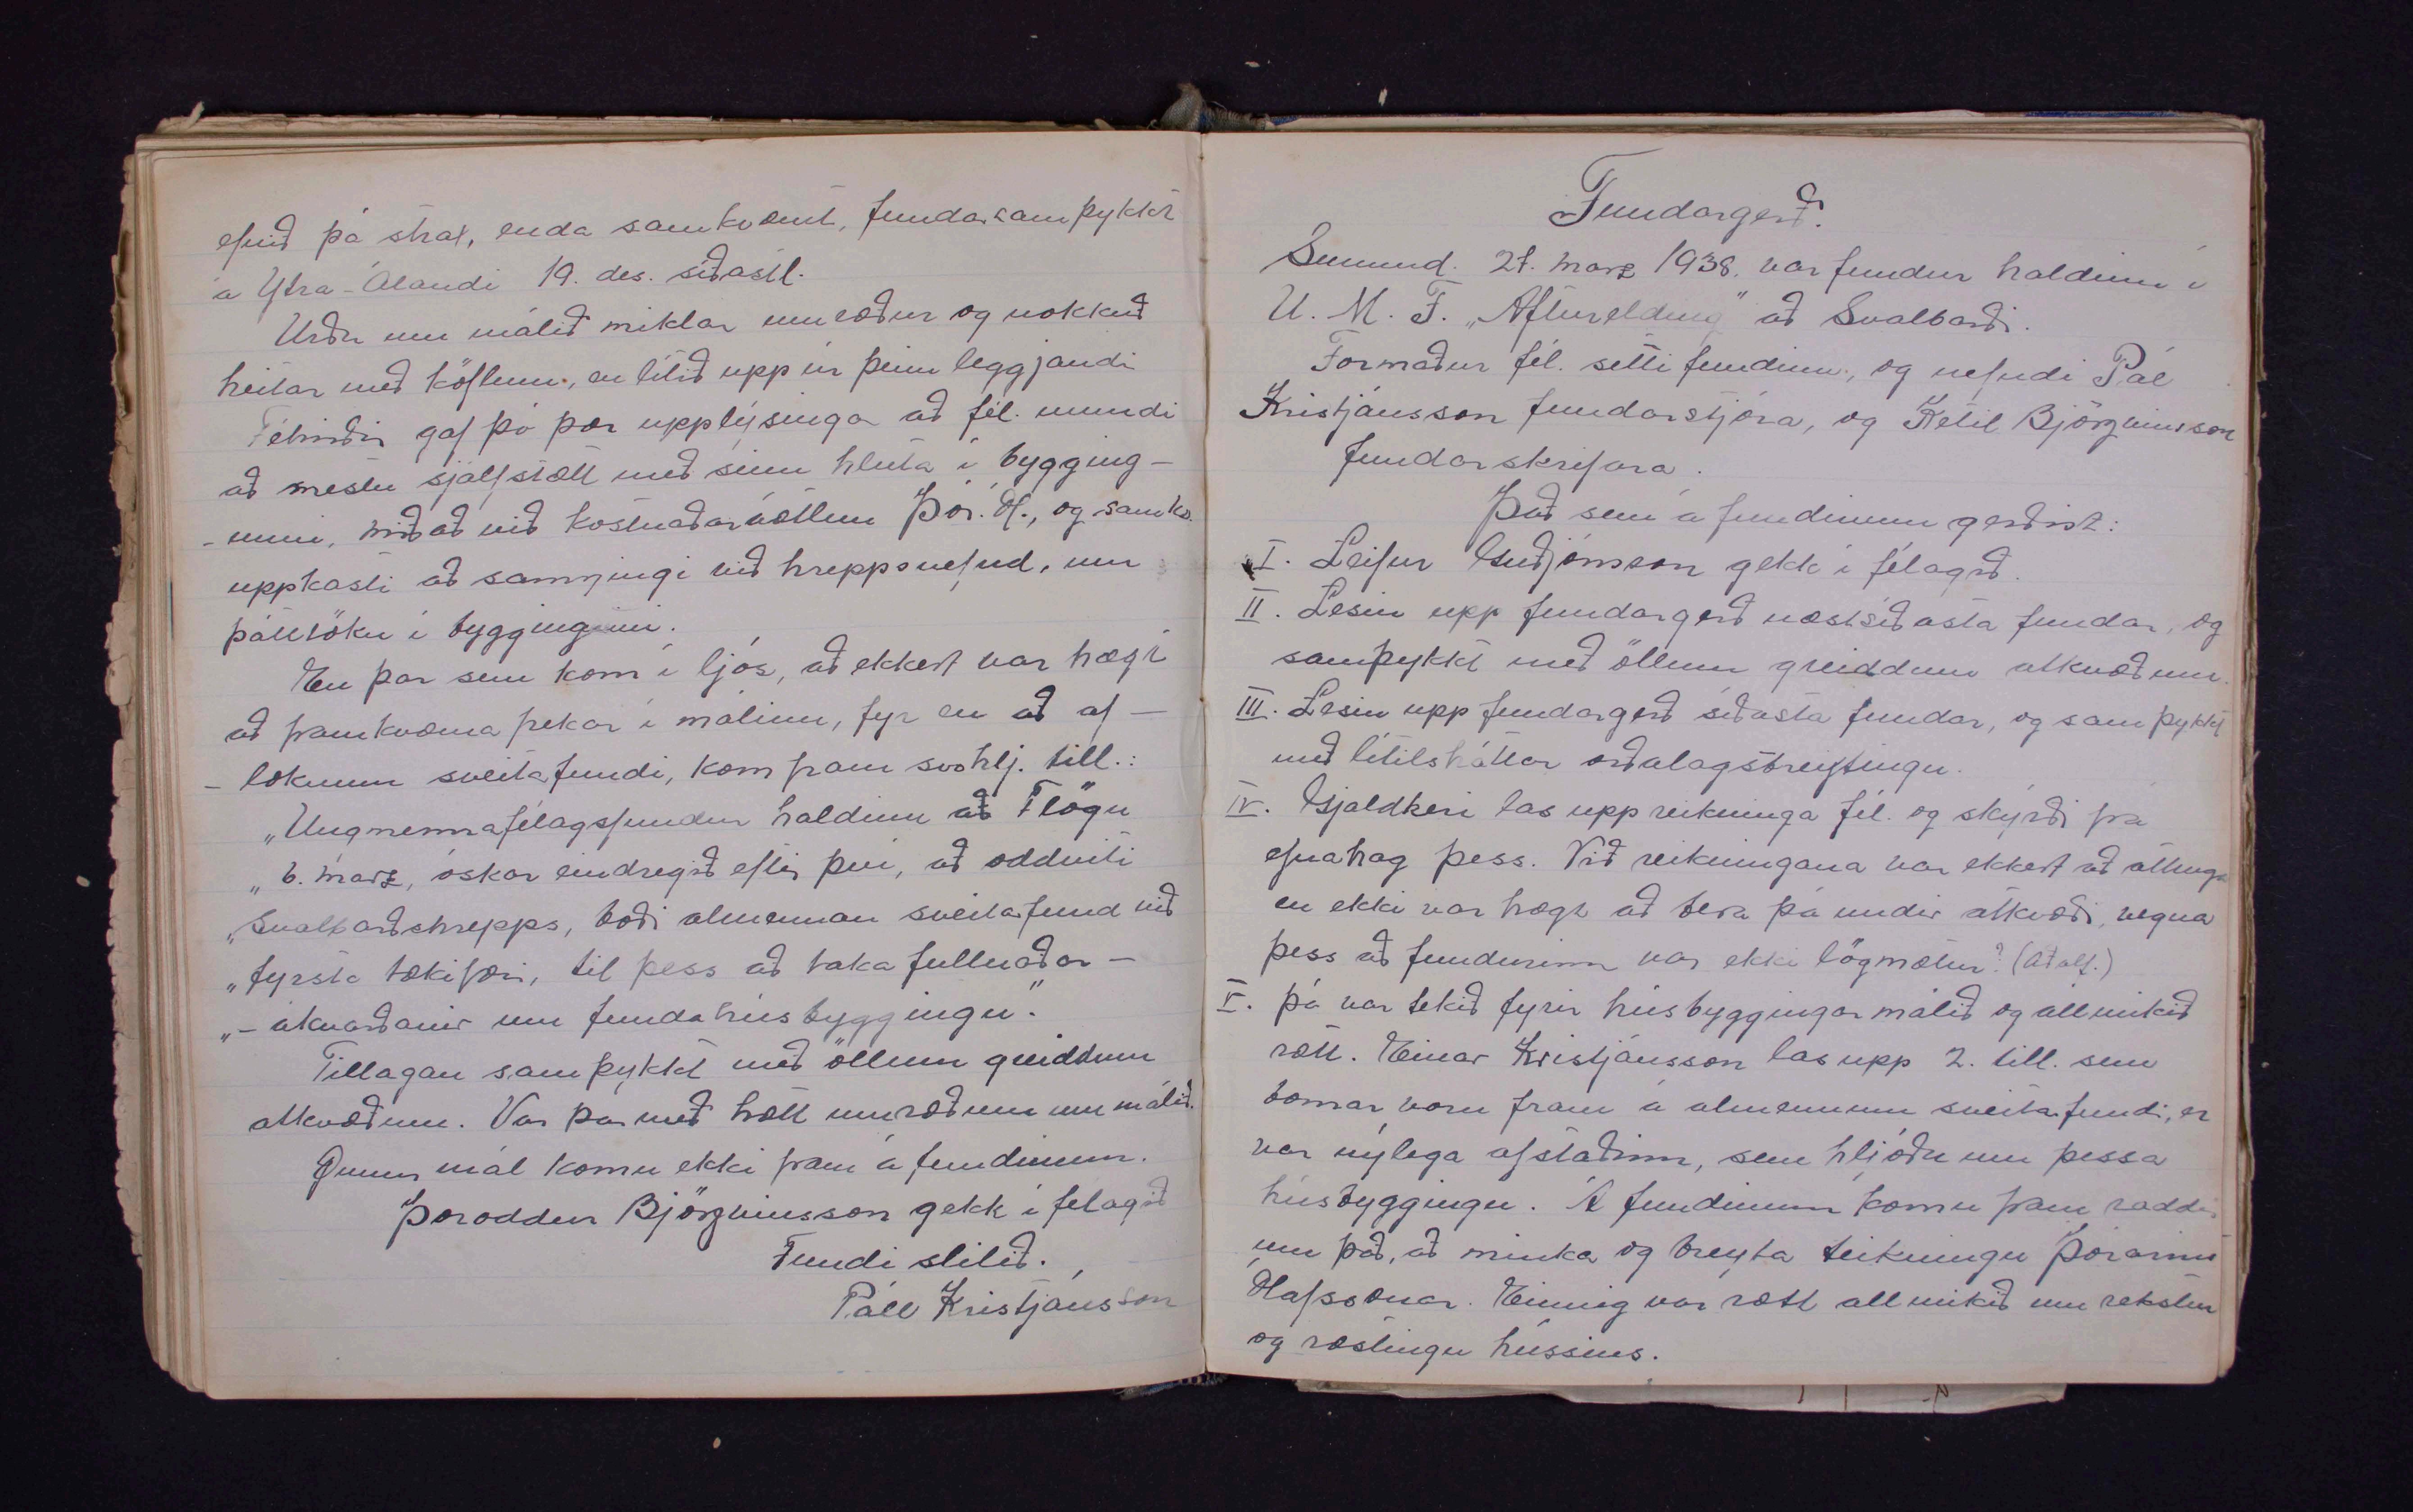 efnið þá strax, enda samkvæmt, fundarsamþykkt
á Ytra-Álandi 19. des. síðastl.
Urðu um málið miklar umræður og nokkuð
heitar með köflum, en lítið upp úr þeim leggjandi
Féhirðir gaf þó þær upplýsingar að fél. mundi
að mestu sjálfstætt með sinn hluta í bygging-
-unni, miðað við kostnaðaráætlun Þór. Ól., og samkv.
uppkasti að samningi við hreppsnefnd, um
þátttöku í byggingunni.
En þar sem kom í ljós, að ekkert var hægt
að framkvæma frekar í málinu, fyr en að af-
-loknum sveitafundi, kom fram svohlj. till.:
„Ungmennafélagsfundur haldinn að Flögu
„6. marz, óskar eindregið eftir því, að oddviti
„Svalbarðshrepps, boði almennan sveitafund við
„fyrsta tækifæri, til þess að taka fullnaðar-
„-ákvarðanir um fundahúsbyggingu."
Tillagan samþykkt með öllum greiddum
atkvæðum. Var þar með hætt umræðum um málið.
Önnur mál komu ekki fram á fundinum.
Þóroddur Björgvinsson gekk í félagið
Fundi slitið.
Páll Kristjánsson
Fundargerð.
Sunnud. 27. marz 1938. var fundur haldinn í
U. M. F. „Afturelding" að Svalbarði.
Formaður fél. setti fundinn, og nefndi Pál
Kristjánsson fundarstjóra, og Ketil Björgvinsson
fundarskrifara.
Það sem á fundinum gerðist:
I. Leifur Guðjónsson gekk í félagið.
II. Lesin upp fundargerð næstsíðasta fundar, og
samþykkt með öllum greiddum atkvæðum.
III. Lesin upp fundargerð síðasta fundar, og samþykkt
með lítilsháttar orðalagsbreytingu.
IV. Gjaldkeri las upp reikninga fél. og skýrði frá
efnahag þess. Við reikningana var ekkert að athuga
en ekki var hægt að bera þá undir atkvæði, vegna
þess að fundurinn var ekki lögmætur? (aðalf.)
V. Þá var tekið fyrir húsbyggingarmálið og allmikið
rætt. Einar Kristjánsson las upp 2. till. sem
bornar voru fram á almennum sveitafundi, er
var nýlega afstaðinn, sem hljóðu um þessa
húsbyggingu. Á fundinum komu fram raddir
um það, að minka og breyta teikningu Þórarins
Ólafssonar. Einnig var rætt allmikið um rekstur
og ræstingu hússins.